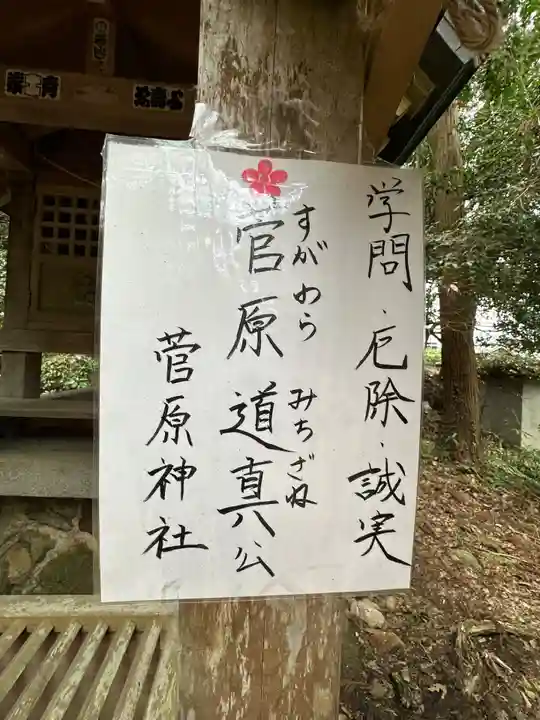 学問・厄除・誠実
官原道真公
すがわら みちざね
菅原神社